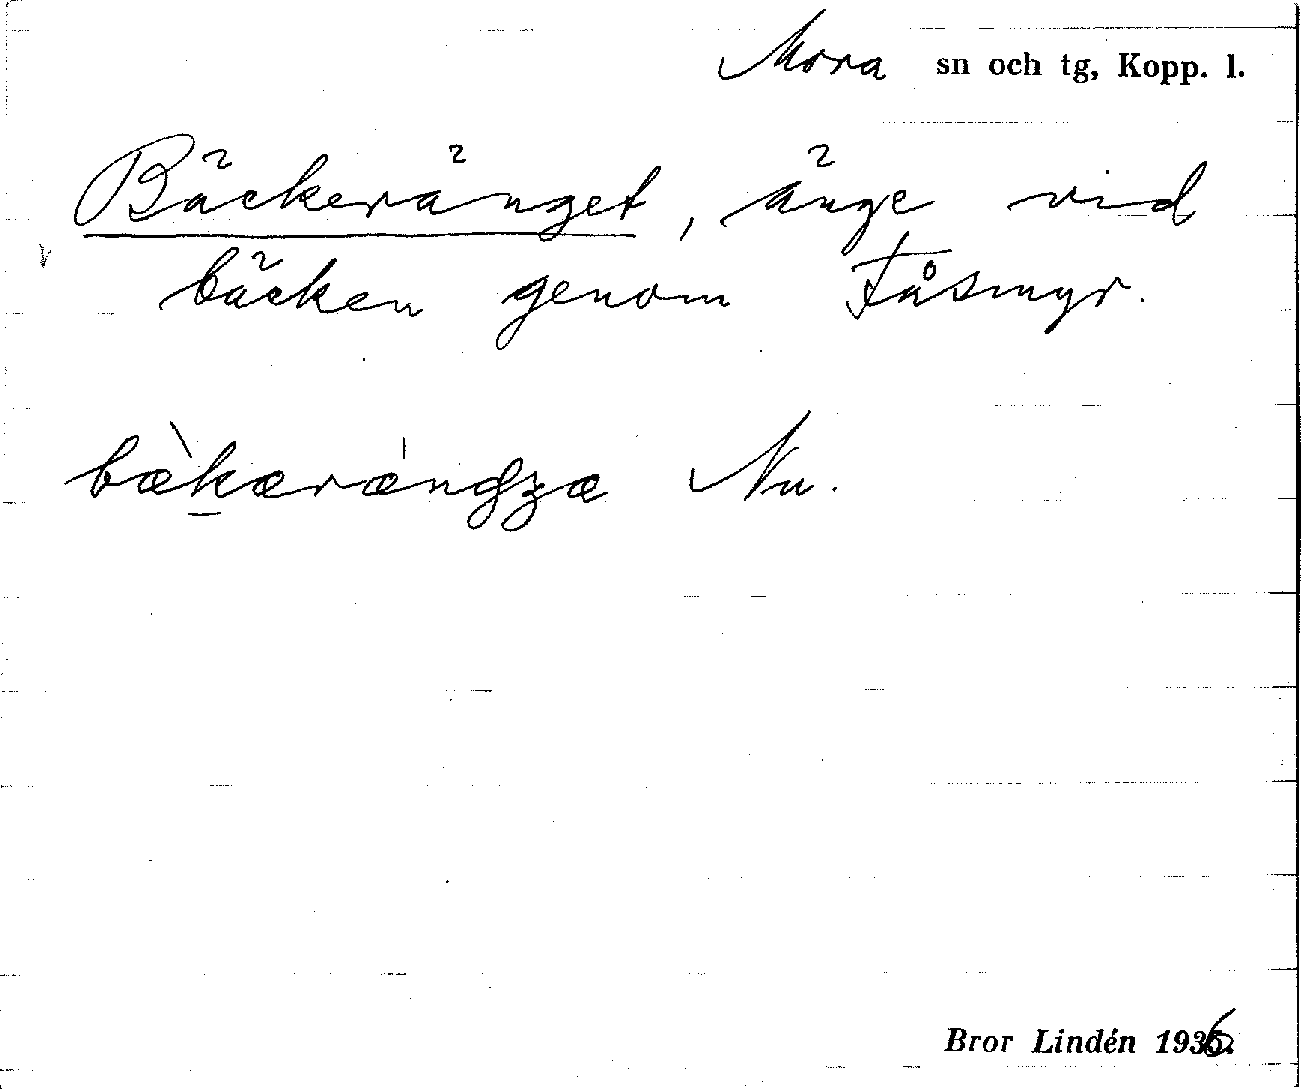 Mora sn och tg, Kopp. l.
Bäckeränget, änge vid
bäcken genom Fåsmyr.
bæ̀kæræ̀ngʒæ Nu.
Bror Lindén 1936.